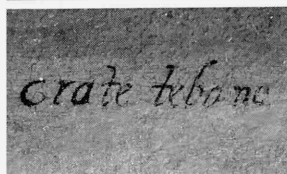 crate tebano